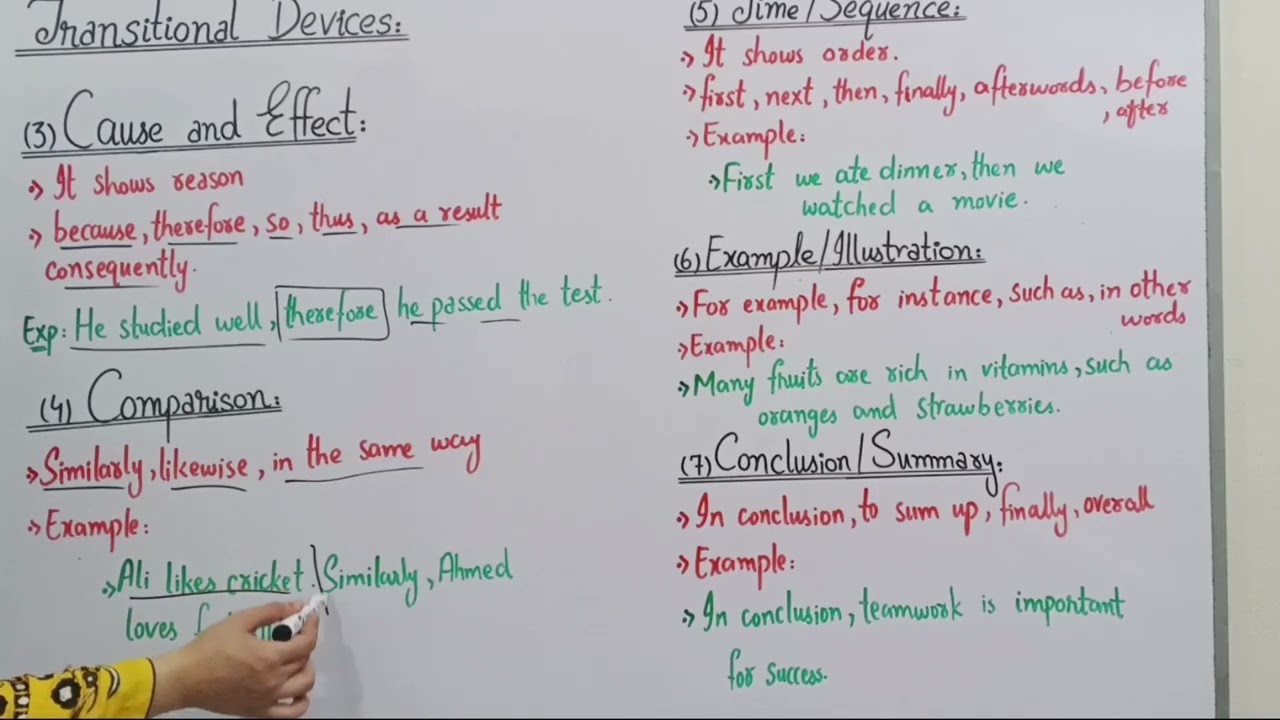 Transitional Devices:
(3) Cause and Effect:
→ It shows reason
→ because, therefore, so, thus, as a result
consequently.
Exp: He studied well, therefore he passed the test.
(4) Comparison:
→ Similarly, likewise, in the same way
→ Example:
→ Ali likes cricket. Similarly, Ahmed
loves
(5) Time/Sequence:
→ It shows order.
→ first, next, then, finally, afterwords, before
, after
→ Example:
→ First we ate dinner, then we
watched a movie.
(6) Example/Illustration:
→ For example, for instance, such as, in other
words
→ Example:
→ Many fruits are rich in vitamins, such as
oranges and strawberries.
(7) Conclusion/Summary:
→ In conclusion, to sum up, finally, overall
→ Example:
→ In conclusion, teamwork is important
for success.